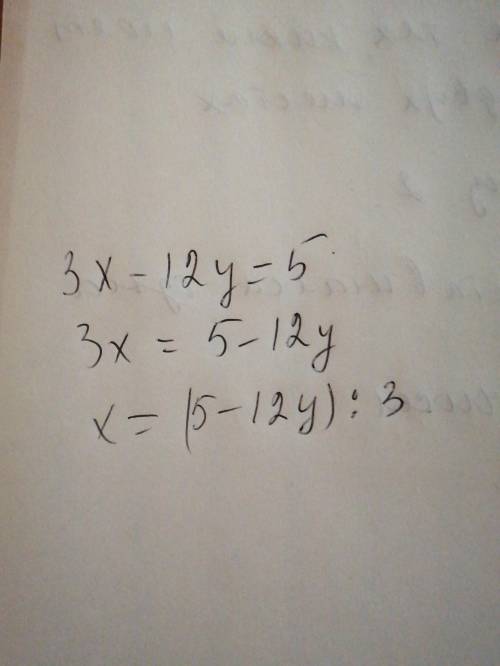 3x - 12y = 5
3x = 5 - 12y
x = (5 - 12y) : 3